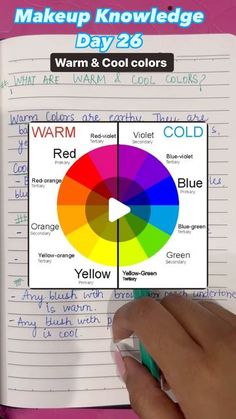 Makeup Knowledge
Day 26
Warm & Cool colors
WHAT ARE WARM & COOL COLORS?
Warm Colors are earthy. They are
WARM
COLD
Red-violet
Tertiary
Violet
Secondary
Red
Primary
Blue-violet
Tertiary
Red-orange
Tertiary
Blue
Primary
Orange
Secondary
Blue-green
Tertiary
Yellow-orange
Tertiary
Green
Secondary
Yellow
Primary
Yellow-Green
Tertiary
- Any blush with brown or peach undertone
is warm.
- Any blush with p
is cool.